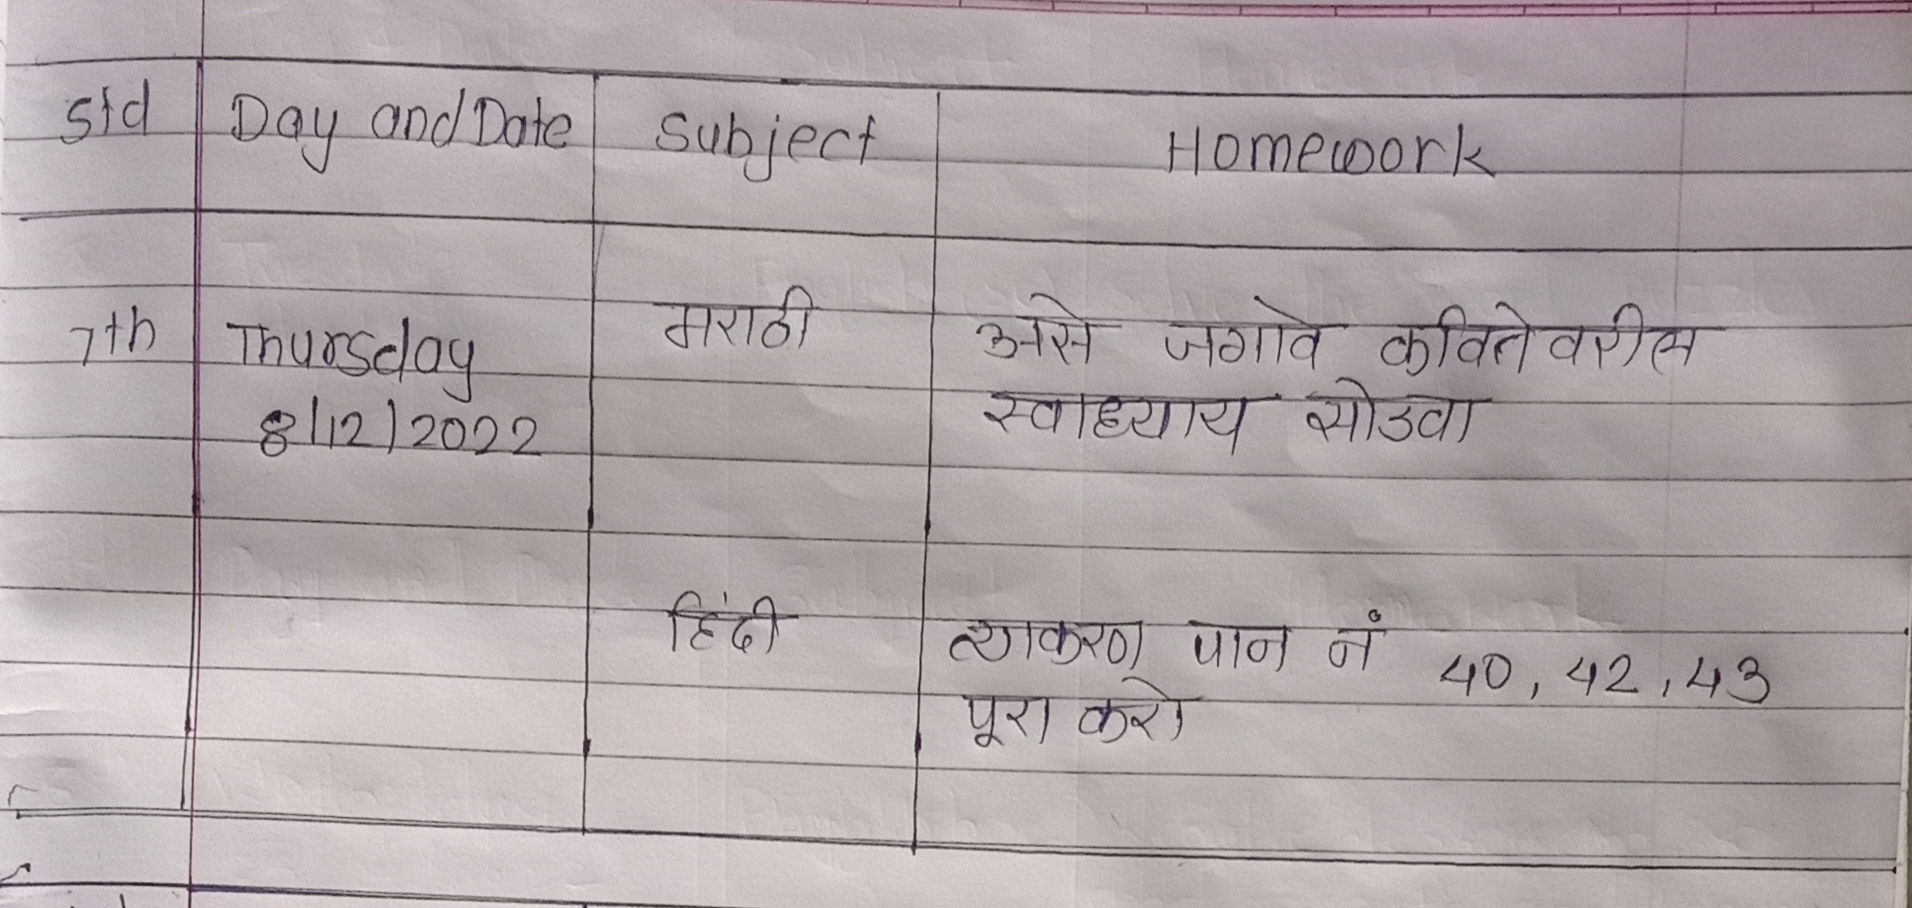 Std Day and Date Subject Homework
7th Thursday मराठी असे जगावे कवितेवरील
8/12/2022 स्वाध्याय सोडवा
हिंदी व्याकरण पान नं 40, 42, 43
पूरा करो